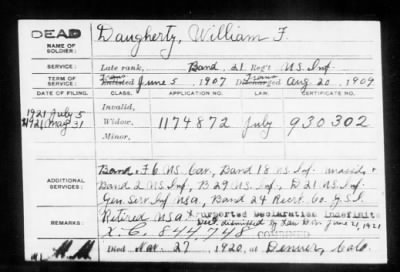 DEAD
NAME OF SOLDIER: Daugherty, William F.
SERVICE: Late rank, Band, 21 Reg't U.S. Inf.
TERM OF SERVICE: Trans Enlisted June 5, 1907 Trans Discharged Aug 20, 1909
DATE OF FILING. CLASS. APPLICATION NO. LAW. CERTIFICATE NO.
Invalid,
1921 July 5
1921 May 31 Widow, 1174872 July 930302
Minor,
ADDITIONAL SERVICES: Band & F 6 U.S. Cav., Band 18 U.S. Inf. unassd. &
Band 2 U.S. Inf., B 29 U.S. Inf., D 21 U.S. Inf.
Gen. Serv. Inf. USA, Band 24 Recrt. Co. G.S.I.
REMARKS: Retired USA Purported Declaration Indefinite
Decl. submitted by June 21, 1921
X C 844,748
Died Mar. 27, 1920, at Denver, Colo.